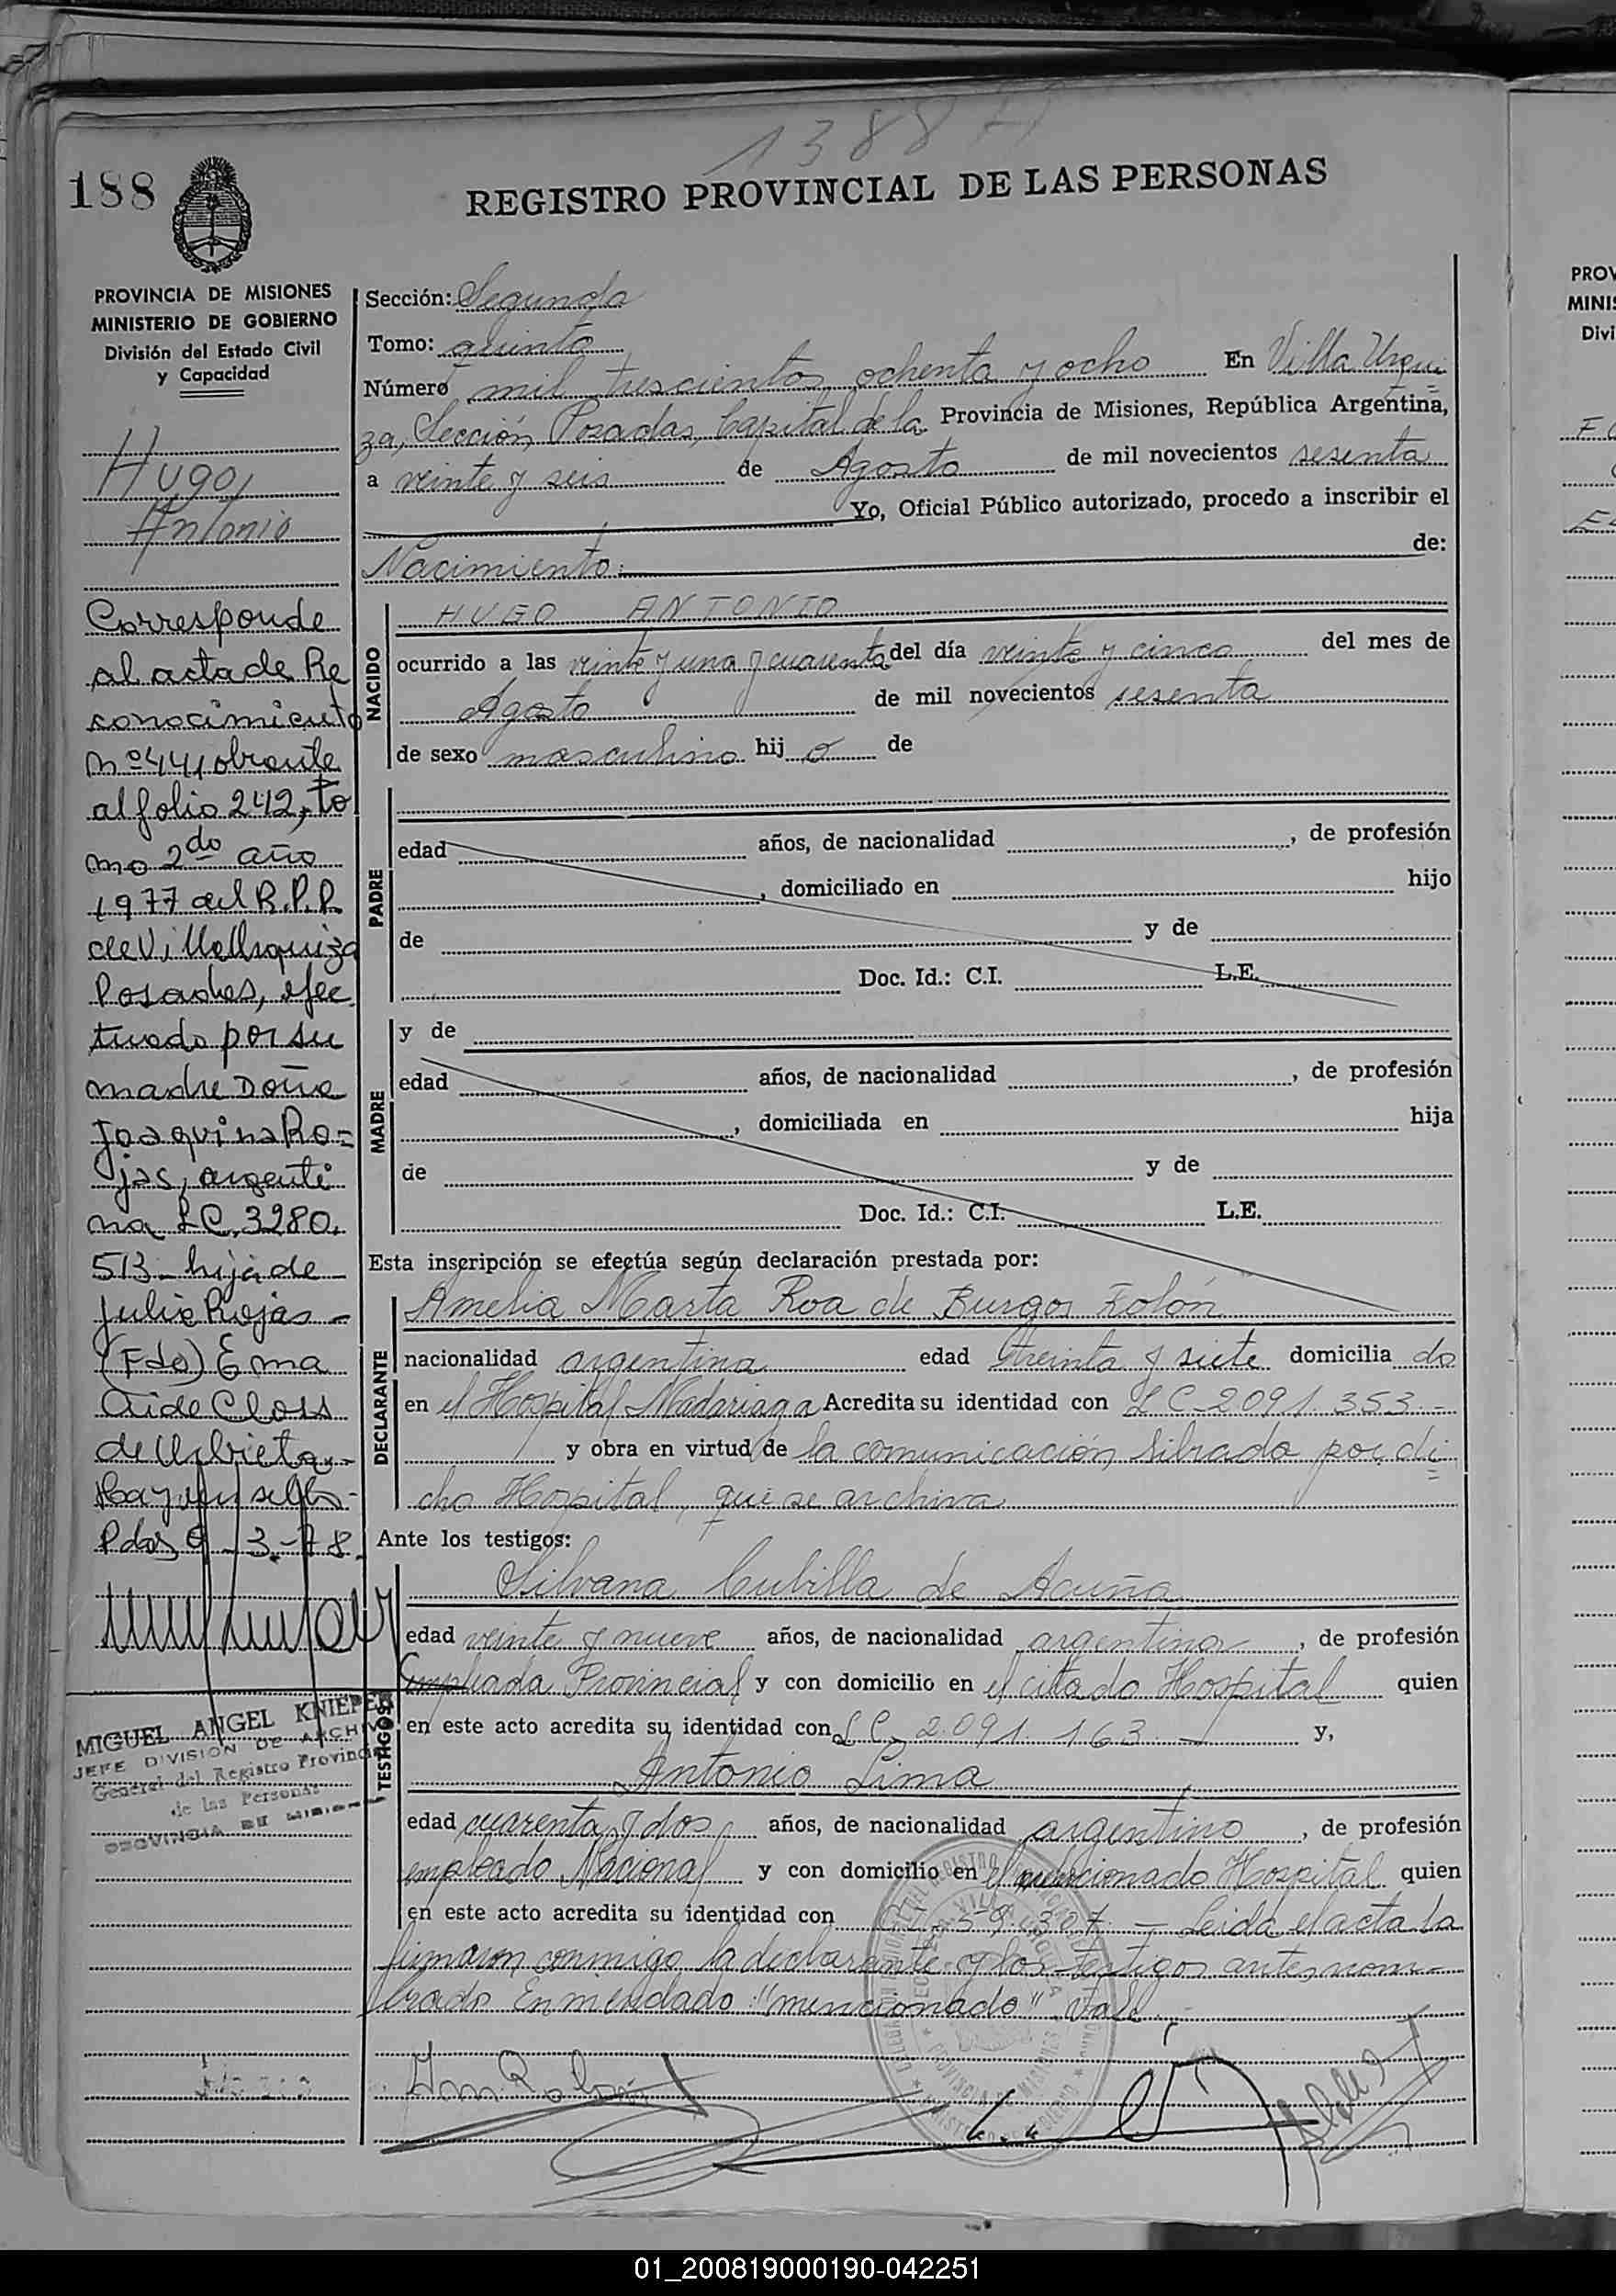 1388
188
REGISTRO PROVINCIAL DE LAS PERSONAS
PROVINCIA DE MISIONES
MINISTERIO DE GOBIERNO
División del Estado Civil
y Capacidad
Hugo
Antonio
Corresponde
al acta de Re
conocimiento
Nº 441 obrante
al folio 242, to
mo 2do año
1977 del R.P.P.
de Villa Urquiza
Posadas, efec
tuado por su
madre Doña
Joaquina Ro=
jas, argenti
na LC. 3280.
513 - hija de
Julia Rojas -
(Fdo) Ema
Aide Closs
de Urbieta.-
Hay un sello-
Pdas 9-3.-78.
MIGUEL ANGEL KNIEPER
JEFE DIVISION DE ARCHIVO
General del Registro Provincial
de las Personas
PROVINCIA DE MISIONES
Sección: Segunda
Tomo: quinto
Número mil trescientos ochenta y ocho En Villa Urqui=
za, Sección Posadas, Capital de la Provincia de Misiones, República Argentina,
a veinte y seis de Agosto de mil novecientos sesenta
Yo, Oficial Público autorizado, procedo a inscribir el
Nacimiento: de:
NACIDO
HUGO ANTONIO
ocurrido a las veinte y una y cuarenta del día veinte y cinco del mes de
Agosto de mil novecientos sesenta
de sexo masculino hijo de
PADRE
edad años, de nacionalidad , de profesión
, domiciliado en hijo
de y de
Doc. Id.: C.I. L.E.
MADRE
y de
edad años, de nacionalidad , de profesión
, domiciliada en hija
de y de
Doc. Id.: C.I. L.E.
Esta inscripción se efectúa según declaración prestada por:
DECLARANTE
Amelia Marta Roa de Burgos Rolón
nacionalidad argentina edad treinta y siete domicilia do
en el Hospital Madariaga Acredita su identidad con LC 2091.353.-
y obra en virtud de la comunicación librada por di=
cho Hospital, que se archiva
Ante los testigos:
TESTIGOS
Silvana Cubilla de Acuña
edad veinte y nueve años, de nacionalidad argentina, de profesión
Empleada Provincial y con domicilio en el citado Hospital quien
en este acto acredita su identidad con LC. 2.091.163 - y,
Antonio Lima
edad cuarenta y dos años, de nacionalidad argentino, de profesión
empleado Nacional y con domicilio en el mencionado Hospital quien
en este acto acredita su identidad con 59.307.- Leída el acta la
firmaron conmigo la declarante y los testigos antes nom-
brado Enmendado: "mencionado" Vale
01_200819000190-042251
PROV
MINIS
Divi